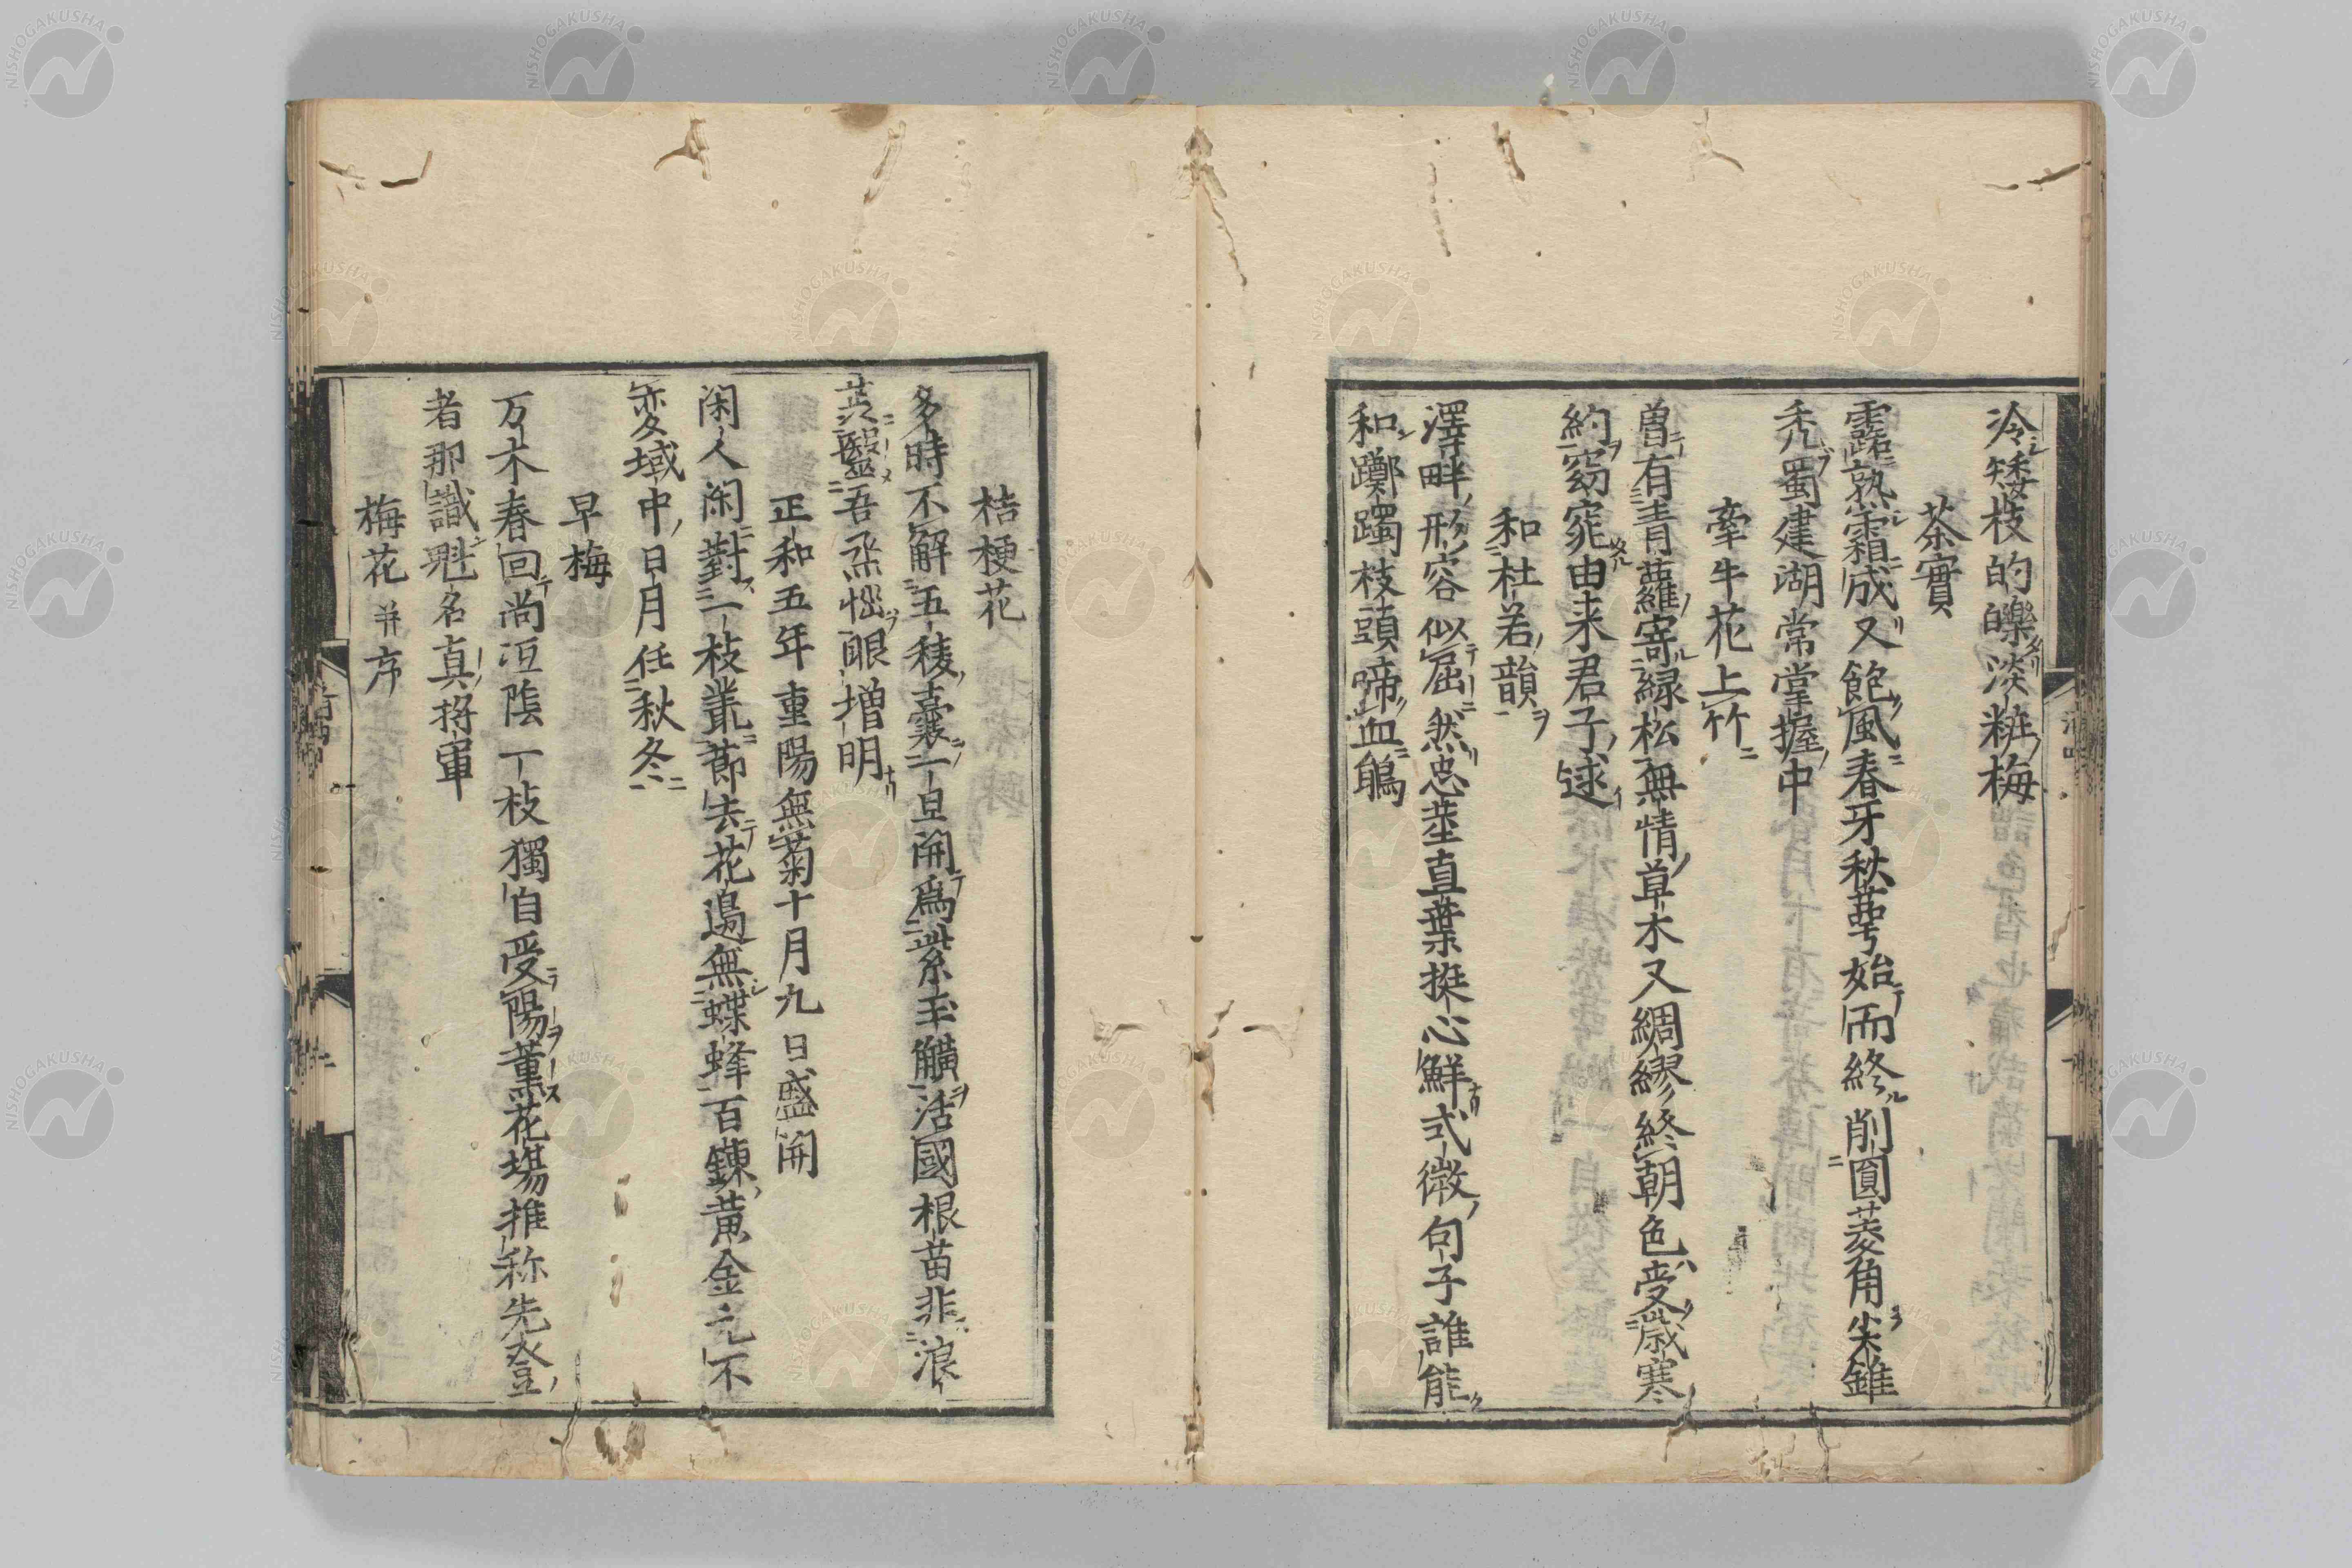 冷矮枝的皪淡粧梅
茶實
露熟霜成又飽風春牙秋蕚始而終削圓菱角尖錐
禿蜀建湖常掌握中
牽牛花上竹
曽有青蘿寄緑松無情草木又綢繆終朝色受歳寒
約窈窕由来君子逑
和杜若韻
澤畔形容似屈然忠莖直葉挺心鮮式微句子誰能
和躑躅枝頭啼血鵑
桔梗花
多時不解五稜嚢一旦開為紫玉觥活國根苗非浪
吾眼増明
正和五年重陽無菊十月九日盛開
闲人闲對一枝叢節去花邊無蝶蜂百錬黄金色不
変域中日月任秋冬
早梅
万木春回尚沍陰一枝獨自受陽薫花塲推称先登
者那識魁名真将軍
梅花并序